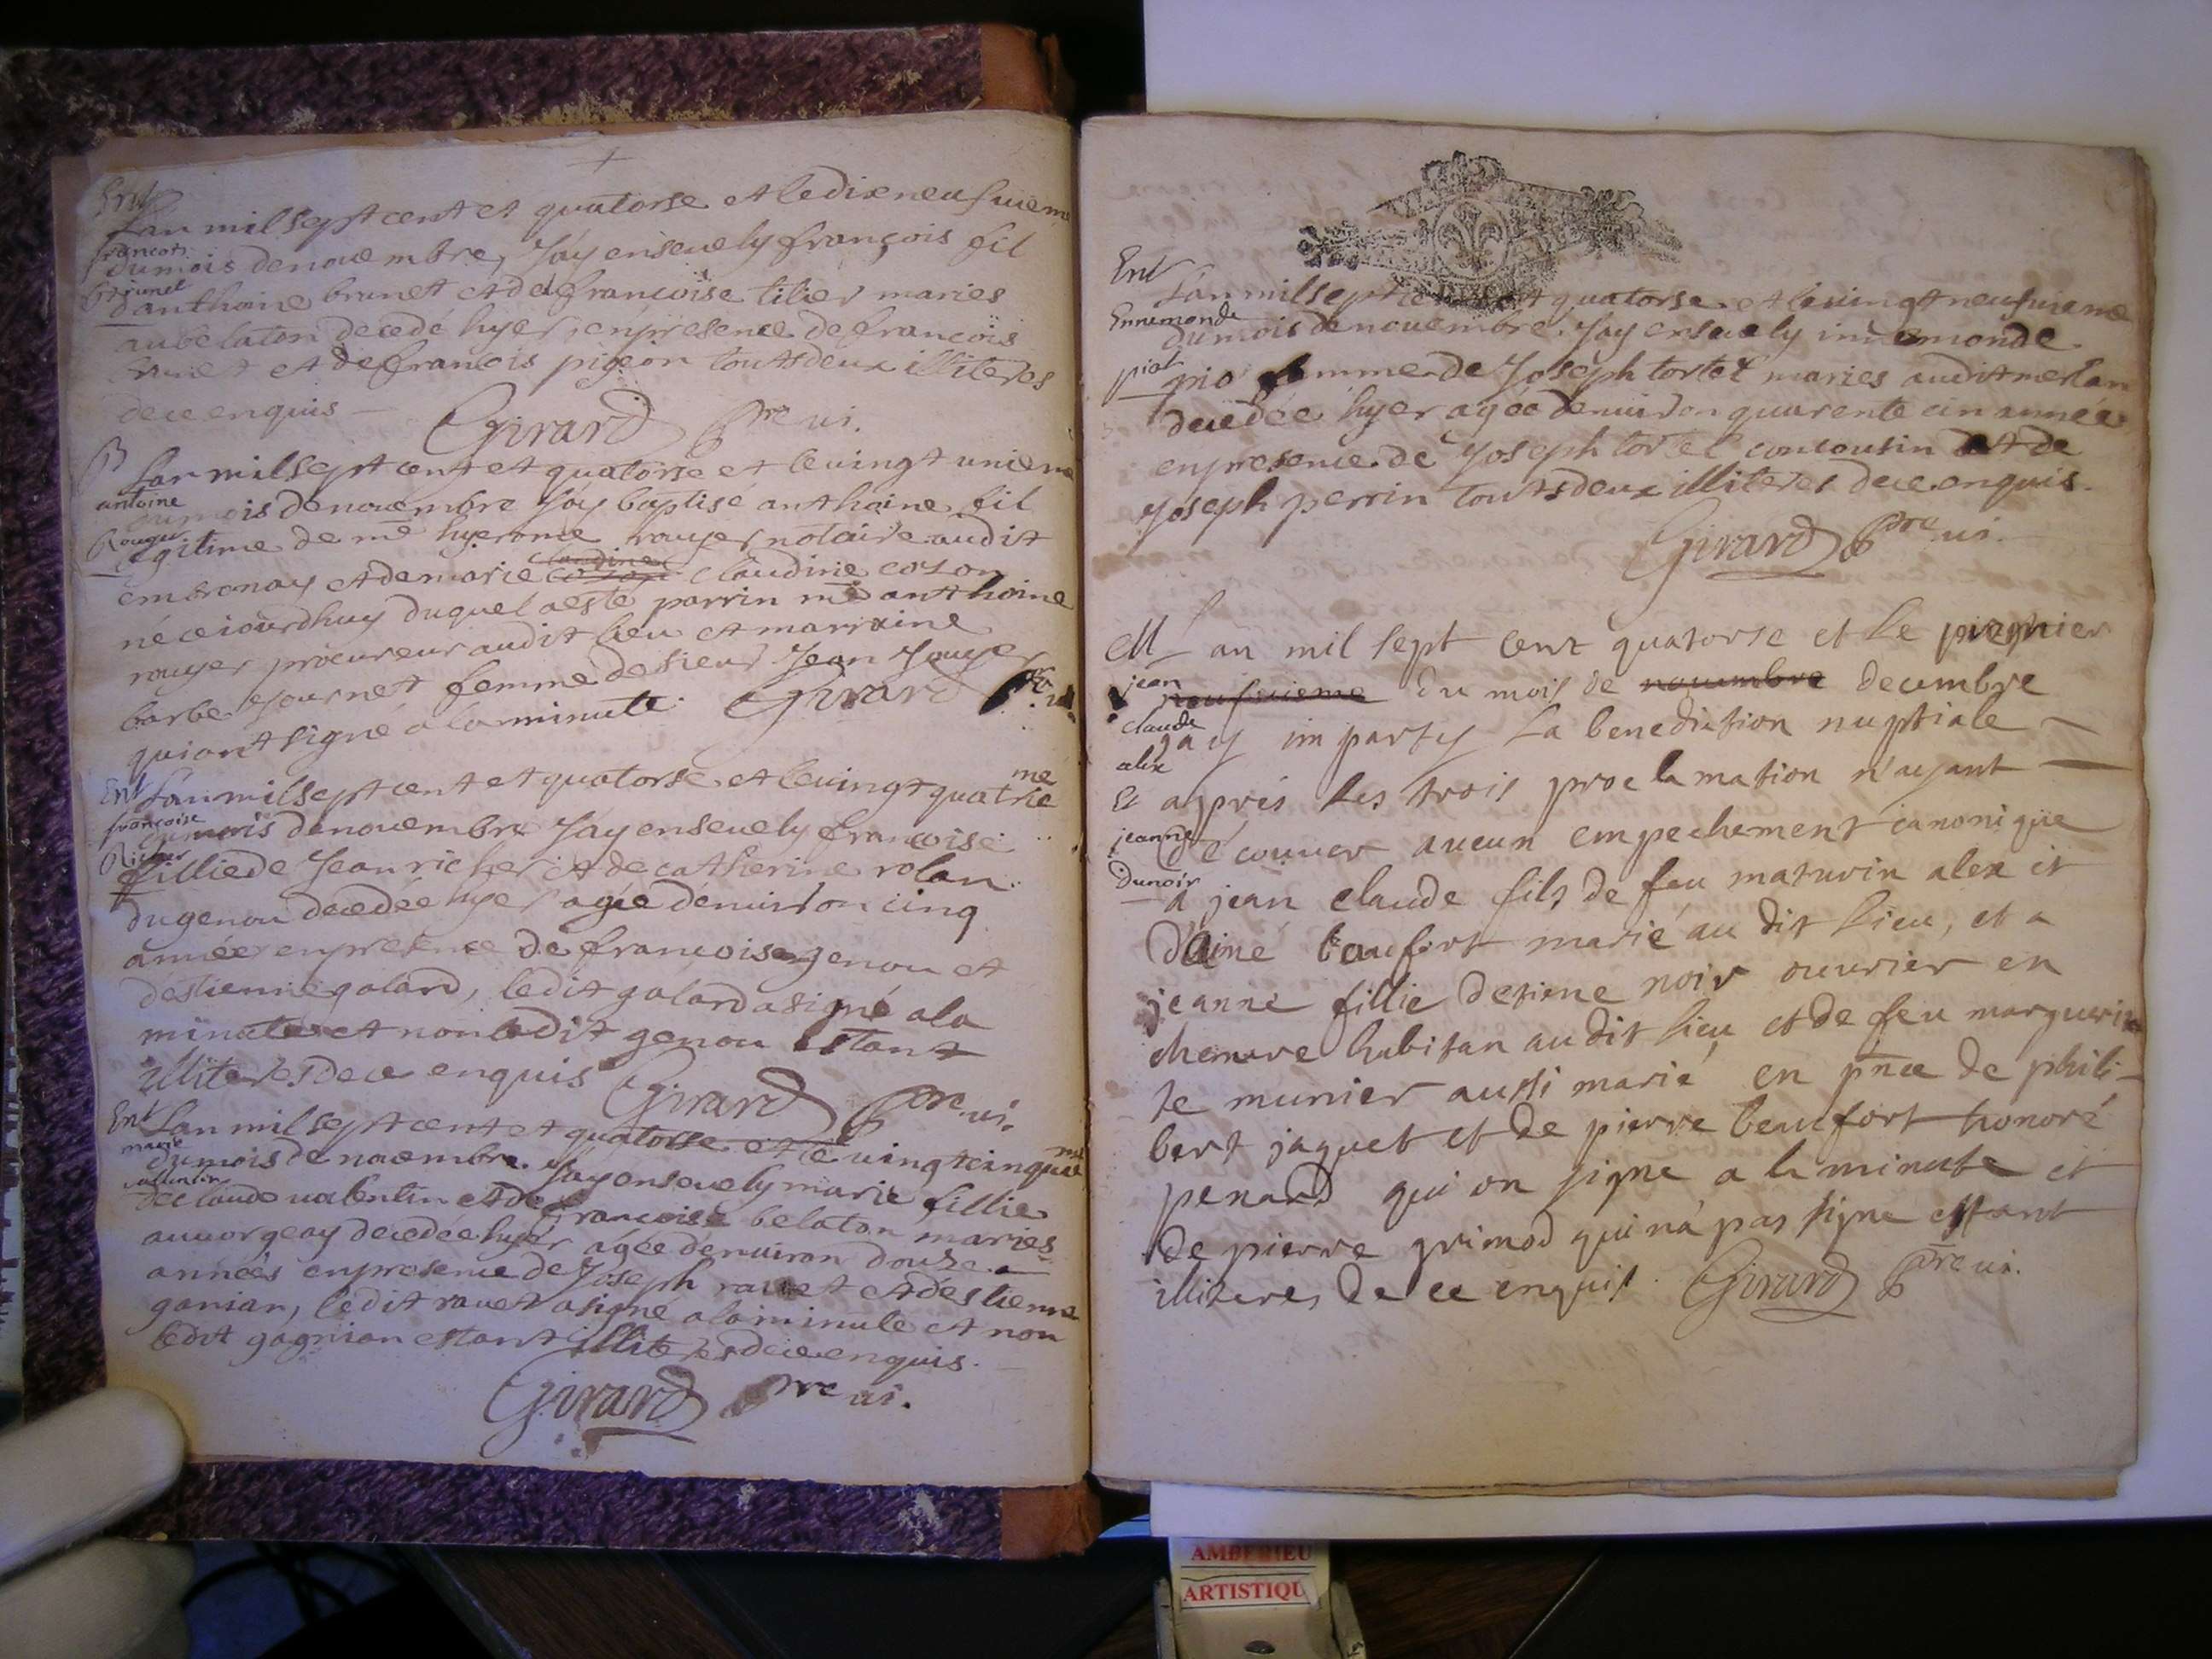 Ent
Lan mil sept cent et quatorse et le dixneufuieme
francois
du mois denouembre, Jay enseuely françois fil
brunet
danthoine brunet et de françoise tilier maries
au belaton decedé hyer, en presence de francois
brunet et de francois pigeon touts deux illiteres
de ce enquis
Girard pre ui.
B
Lan mil sept cent et quatorse et le uingt unieme
antoine
du mois denouembre Jay baptisé anthoine fil
Rouyer
legitime de me hyerome rouyer notaire audit
claudine
embronay et de marie cozon claudine cozon
né ce iourdhuy duquel a esté parrin me anthoine
rouyer procureur audit lieu et marraine
barbe Journet femme de sieur Jean rouyer
qui ont signé a la minute. Girard pre ui.
Ent Lan mil sept cent et quatorse et le uingt quatrie me
francoise
du mois denouembre Jay enseuely francoise
Richer
fillie de Jean richer et de catherine rolan
du genou decedée hyer agée denuiron cinq
année en presence de francois genou et
destienne galard, ledit galard a signé a la
minute et non ledit genou estant
illiteres de ce enquis Girard pre ui.
Ent Lan mil sept cent et quatorse et le uingt cinquie me
marie
du mois de nouembre. Jay enseuely marie fillie
uallentin
de claude ualentin et de francoise belaton maries
au uorgeay decedée hyer agée denuiron douze
années en presence de Joseph rauet et destienne
ganian, ledit rauet a signé a la minute et non
ledit gagnian estant illiteres de ce enquis.
Girard pre ui.
Ent
Lan mil sept cent et quatorse et le uingt neufuieme
Ennemonde
du mois de nouembre. Jay enseuely innemonde
piot
pio femme de Joseph tortel maries audit merlan
decedée hyer agée denuiron quarente cin année
en presence de Joseph tortel son cousin et de
Joseph perrin touts deux illiteres de ce enquis.
Girard pre ui.
M Lan mil sept cent quatorse et le premier
jean
neufuieme du mois de nouembre decembre
claude
jay imparty la benediction nuptiale
alex
et apprés les trois proclamation n'ayant
jeanne
découuer aucun empechement canonique
dunoir
a jean claude fils de feu maturin alex et
d'aimé beaufort marié au dit lieu, et a
jeanne fillie detiene noir ouurier en
chenure habitan au dit lieu et de feu margueri
te munier aussi marié en pnce de phili-
bert jaquet et de pierre beaufort honoré
penard qui on signe a la minute et
de pierre grimod qui na pas signe estant
illiteres de ce enquis. Girard pre ui.
AMBERIEU
ARTISTIQU